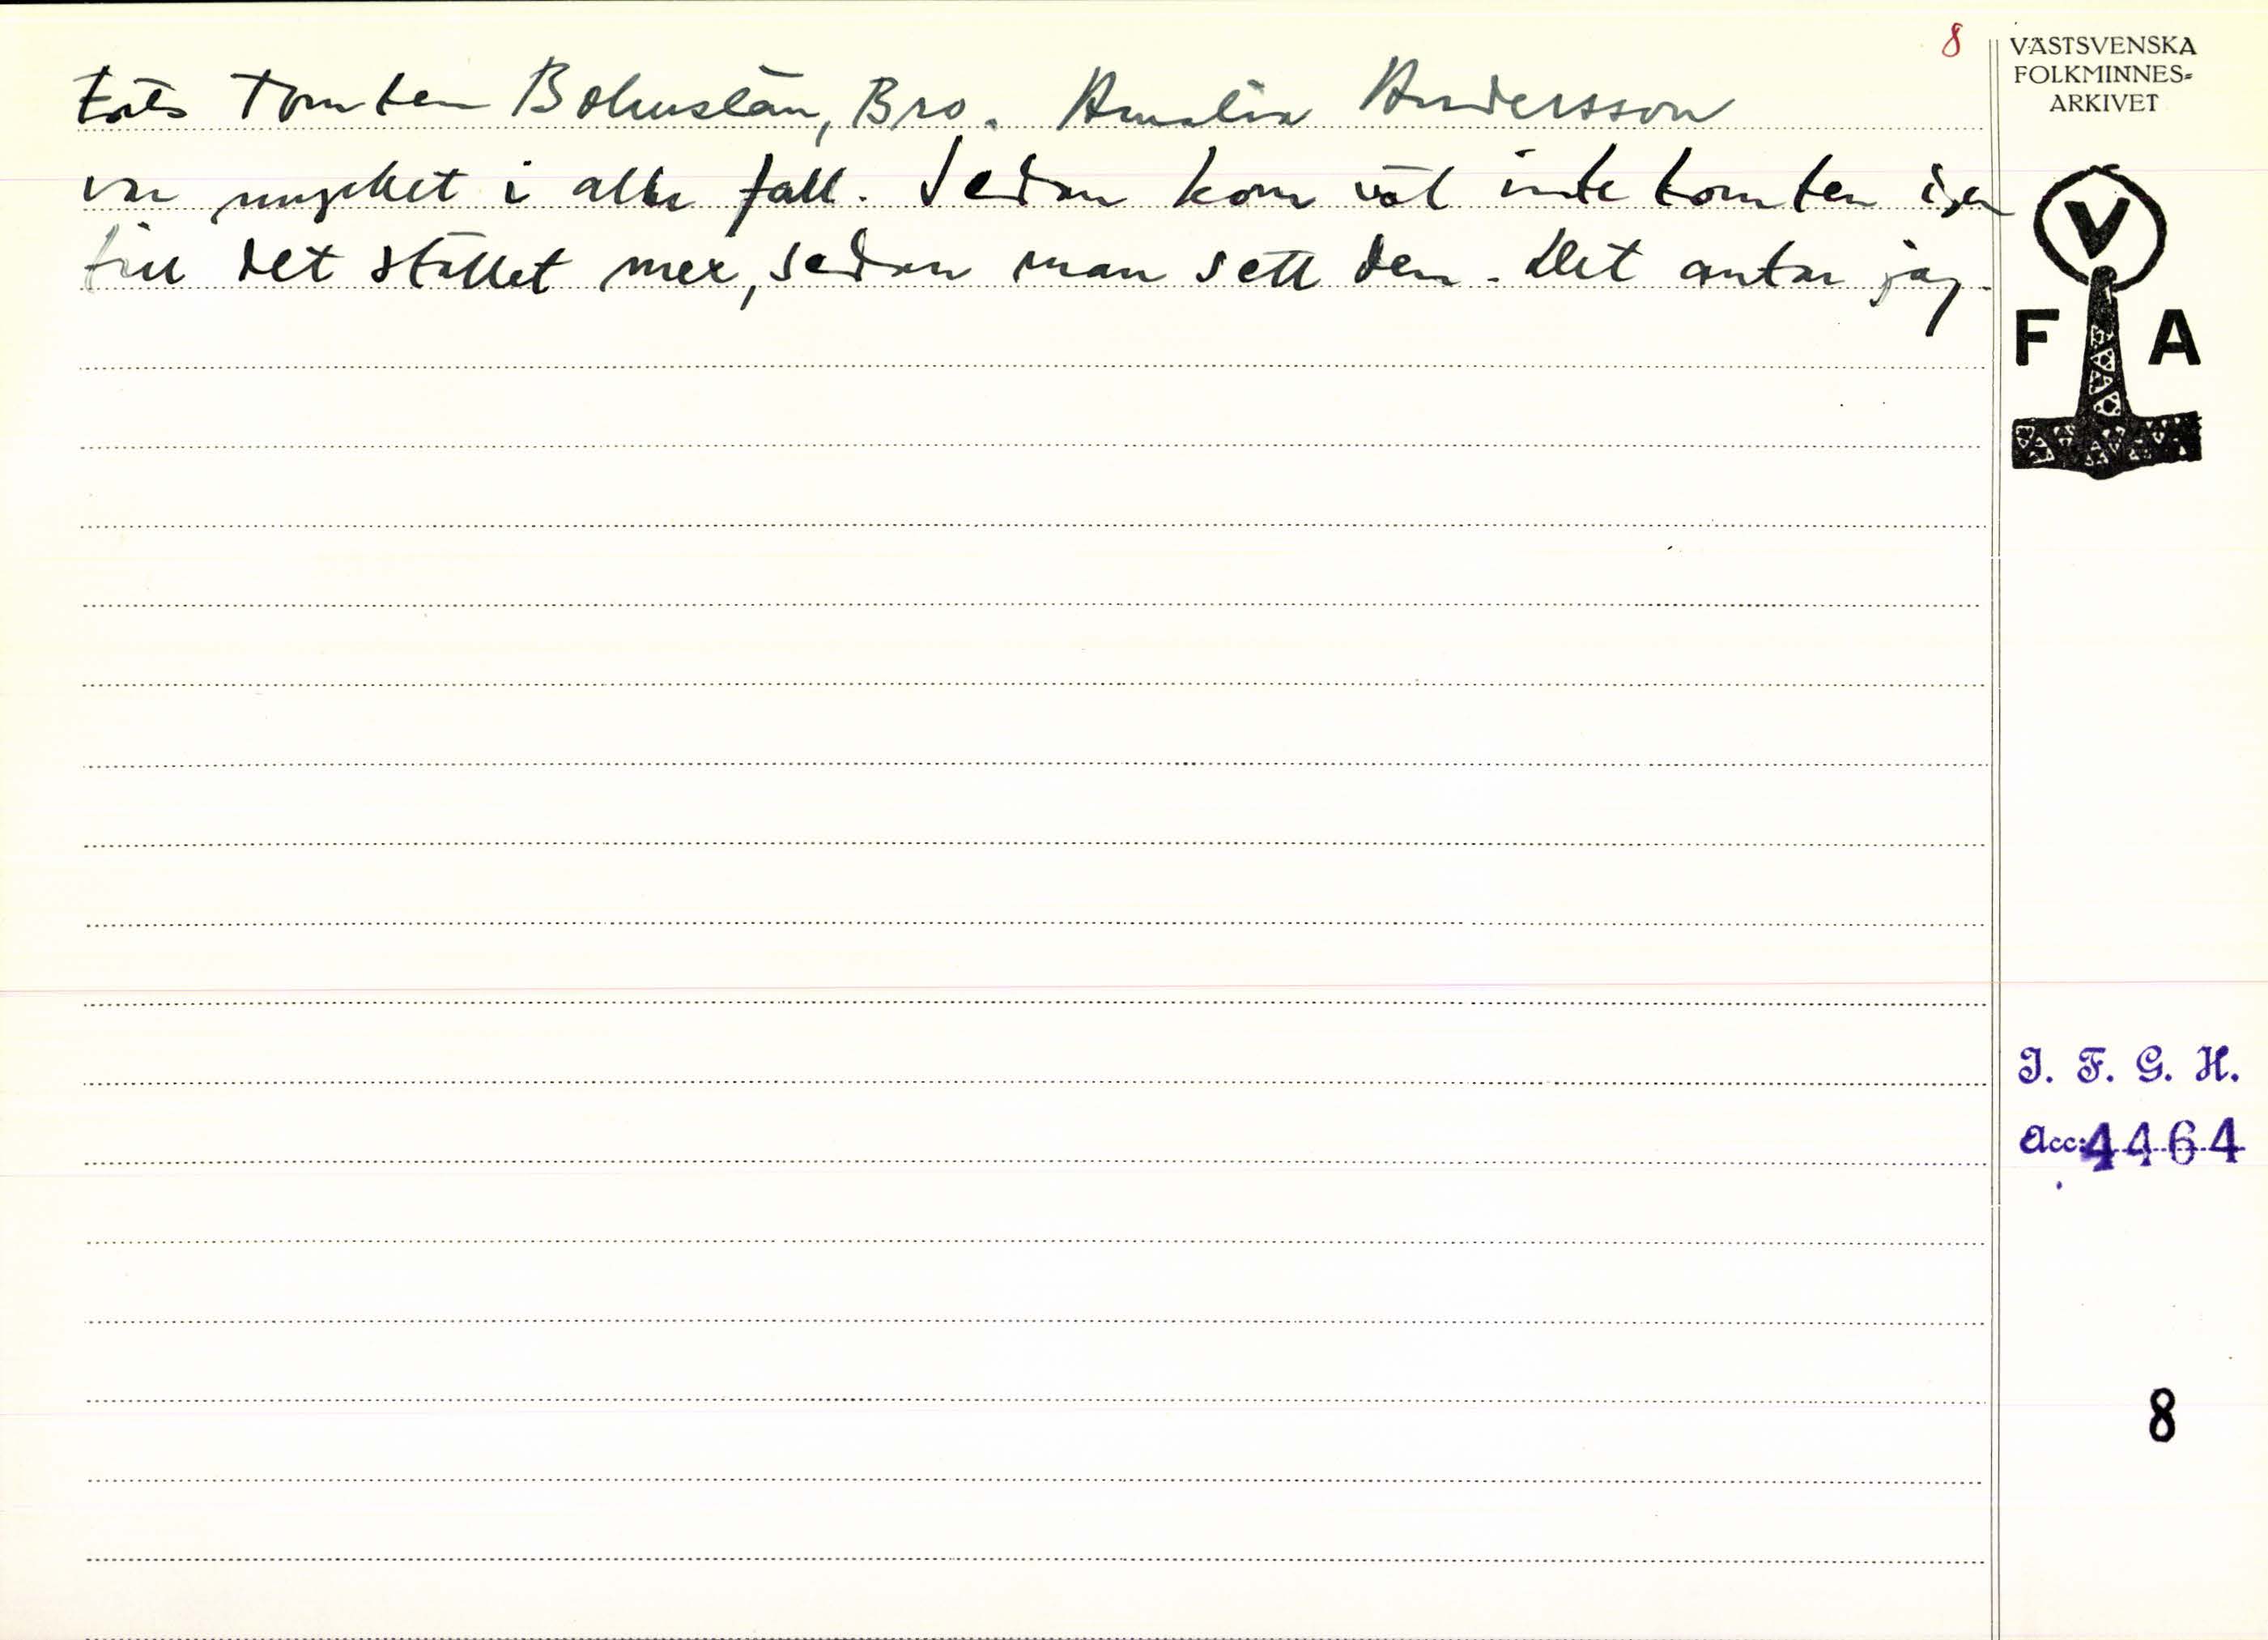 8
Forts Tomten Bohuslän, Bro. Amalia Andersson
var mycket i alla fall. Sedan kom väl inte tomten igen
till det stället mer, sedan man sett den. Det antar jag.
VÄSTSVENSKA
FOLKMINNES-
ARKIVET
V
F A
I. F. G. H.
Acc: 4464
8